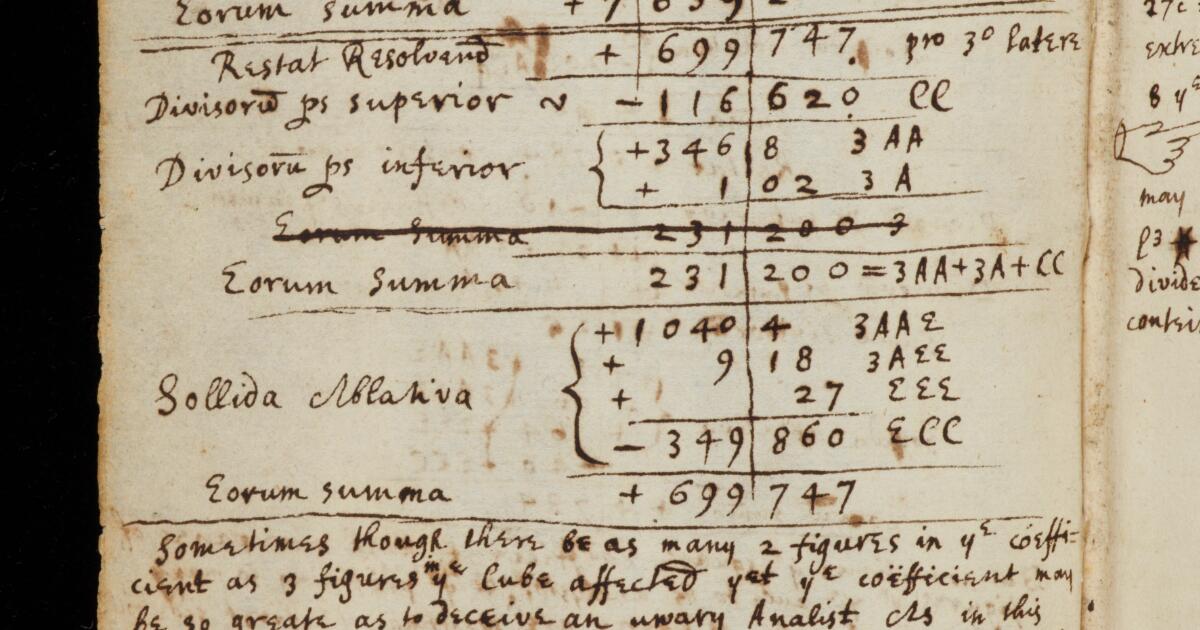 Eorum summa + 7 839 2
Restat Resolvend + 699 747. pro 3º latere
Divisorū ps superior ~ - 116 620 CC
Divisorū ps inferior { +3468 3AA
+ 102 3A
Eorum Summa 231 200
Eorum Summa 231 200 = 3AA+3A+CC
Sollida Ablativa { + 1040 4 3AAE
+ 9 18 3AEE
+ 27 EEE
- 349 860 ECC
Eorum summa + 699 747
Sometimes though there be as many 2 figures in yᵉ cöeffi-
cient as 3 figures in yᵉ Cube affected yet yᵉ cöefficient may
be so greate as to deceive an unwary Analist As in this
extre
8 yᵉ
may
divide
contei